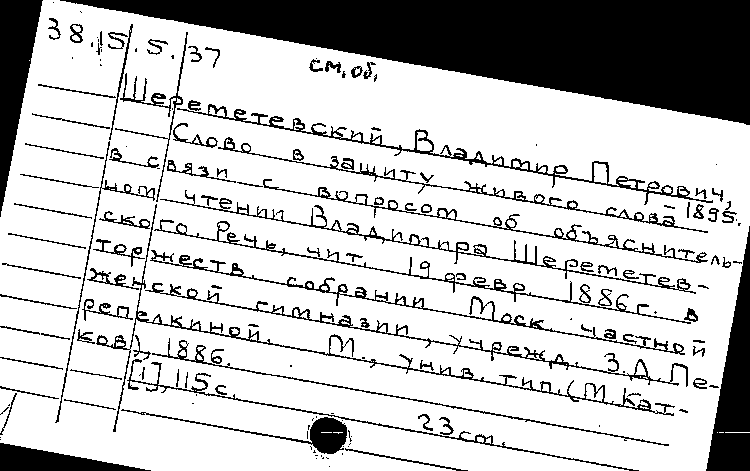 38.15.5.37
см. об.
Шереметевский, Владимир Петрович,
-1895.
Слово в защиту живого слова
в связи с вопросом об объяснитель-
ном чтении Владимира Шереметев-
ского. Речь, чит. 19 февр. 1886 г. в
торжеств. собрании Моск. частной
женской гимназии, учрежд. З.Д. Пе-
репелкиной. М., унив. тип. (М. Кат-
ков), 1886.
[1], 115 с.
23 см.